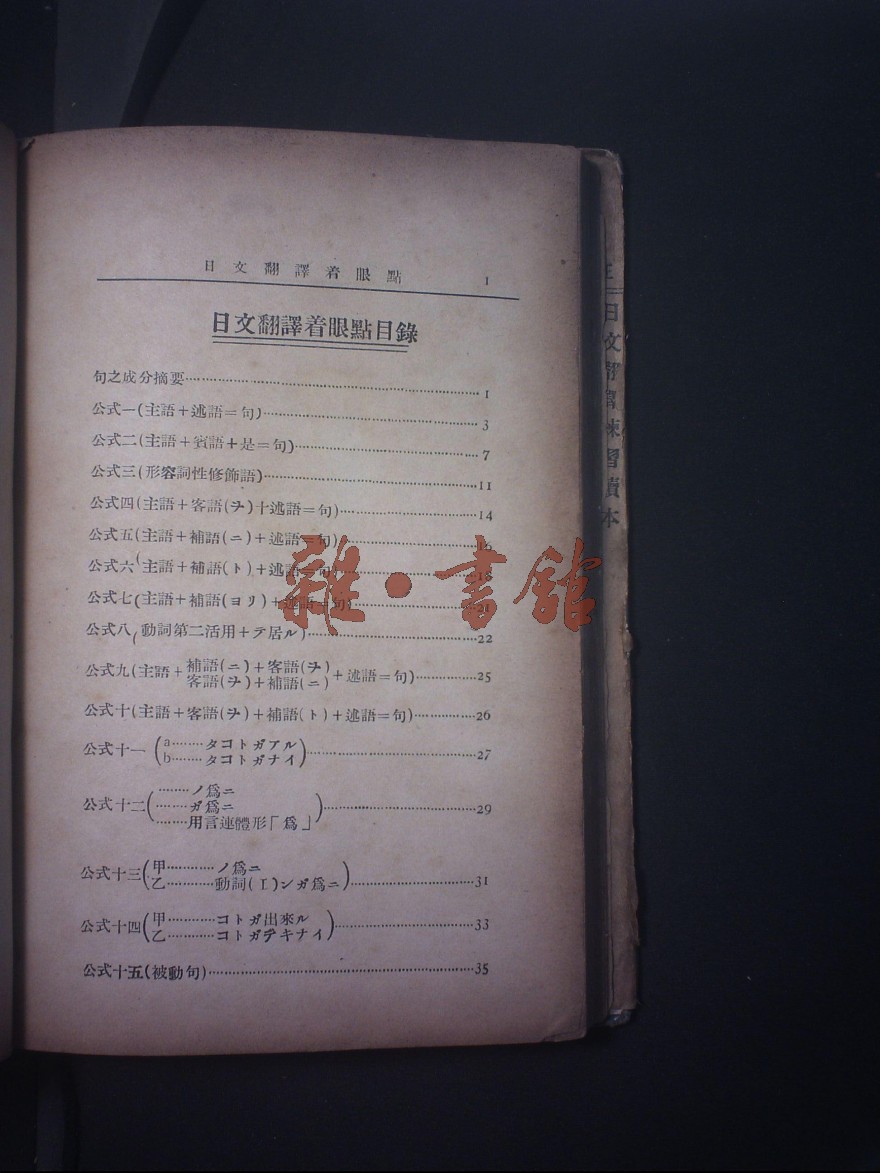 日文翻譯着眼點 1
日文翻譯着眼點目錄
句之成分摘要……1
公式一(主語+述語=句)……3
公式二(主語+賓語+是=句)……7
公式三(形容詞性修飾語)……11
公式四(主語+客語(ヲ)+述語=句)……14
公式五(主語+補語(ニ)+述語=句)……16
公式六(主語+補語(ト)+述語=句)……18
公式七(主語+補語(ヨリ)+述語=句)……21
公式八(動詞第二活用+テ居ル)……22
公式九(主語+補語(ニ)+客語(ヲ)
客語(ヲ)+補語(ニ)+述語=句)……25
公式十(主語+客語(ヲ)+補語(ト)+述語=句)……26
公式十一(a……タコトガアル
b……タコトガナイ)……27
公式十二(……ノ爲ニ
……ガ爲ニ
……用言連體形「爲」)……29
公式十三(甲……ノ爲ニ
乙……動詞(I)ンガ爲ニ)……31
公式十四(甲……コトガ出來ル
乙……コトガデキナイ)……33
公式十五(被動句)……35
雜·書館
日文翻譯練習讀本